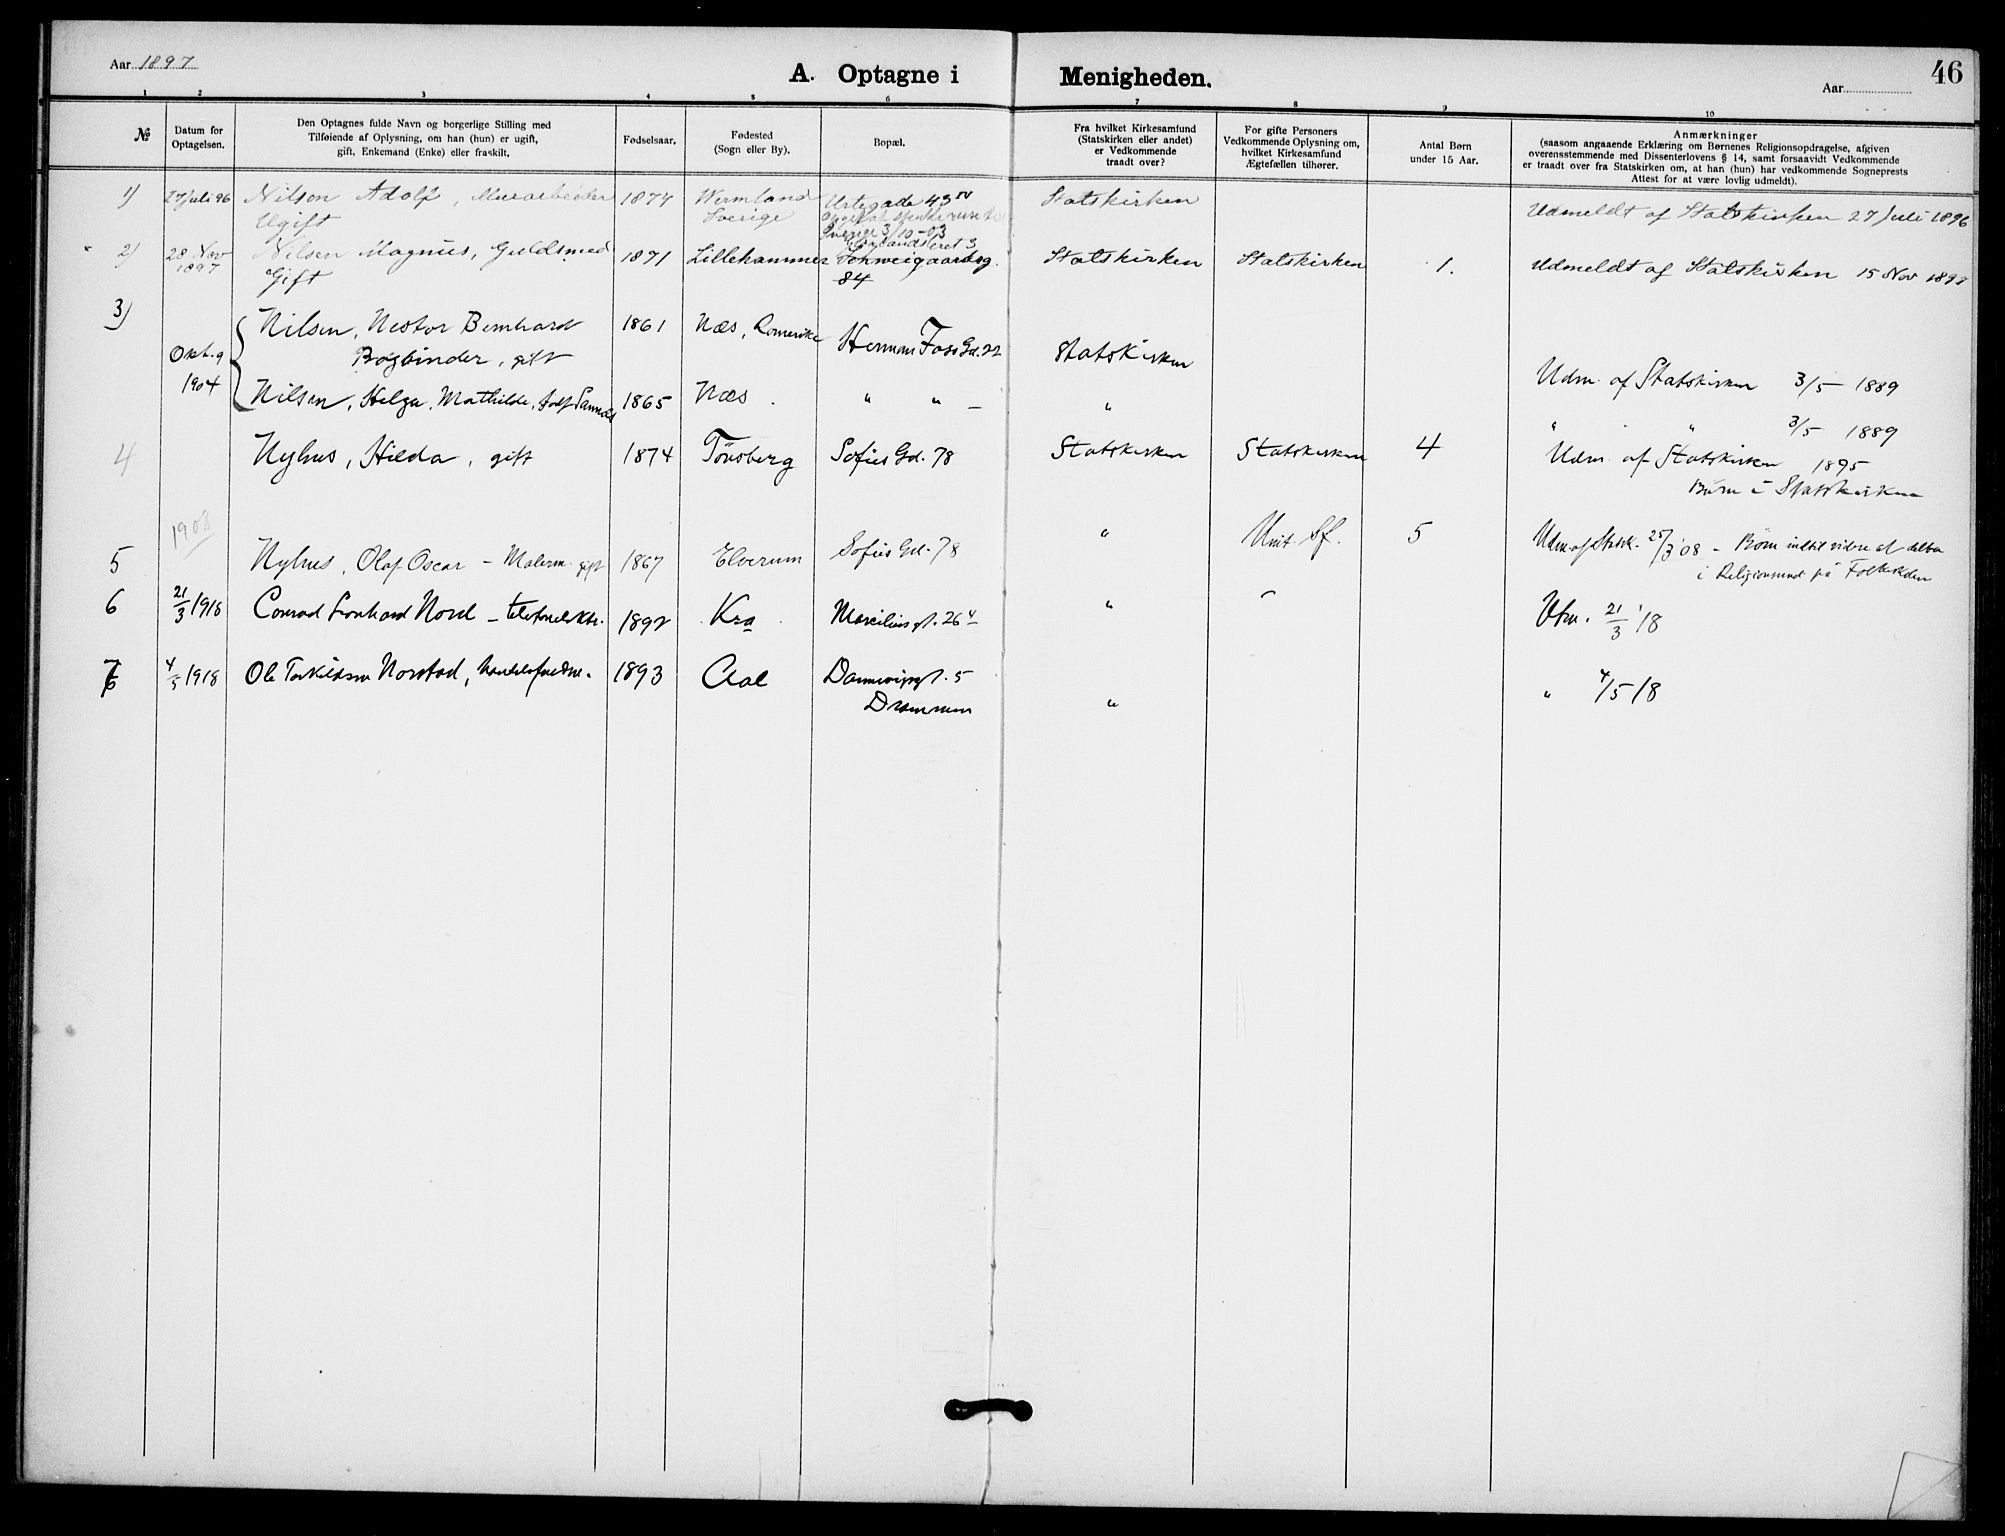 Aar 1897
A. Optagne i Menigheden.
Aar
46
1 2 3 4 5 6 7 8 9 10
№
Datum for
Optagelsen.
Den Optagnes fulde Navn og borgerlige Stilling med
Tilføiende af Oplysning, om han (hun) er ugift,
gift, Enkemand (Enke) eller fraskilt.
Fødselsaar.
Fødested
(Sogn eller By).
Bopæl.
Fra hvilket Kirkesamfund
(Statskirken eller andet)
er Vedkommende
traadt over?
For gifte Personers
Vedkommende Oplysning om,
hvilket Kirkesamfund
Ægtefællen tilhører.
Antal Børn
under 15 Aar.
Anmærkninger
(saasom angaaende Erklæring om Børnenes Religionsopdragelse, afgiven
overensstemmende med Dissenterlovens § 14, samt forsaavidt Vedkommende
er traadt over fra Statskirken om, at han (hun) har vedkommende Sogneprests
Attest for at være lovlig udmeldt).
1) 27 juli 96 Nilson Adolf, Murarbeider 1874 Wermland Urtegade 43 IV Statskirken Udmeldt af Statskirken 27 Juli 1896
Ugift Sverige
Sverige 3/10-03
2) 28 Nov Nilsen Magnus, Guldsmed 1871 Lillehammer Schweigaardsg. Statskirken Statskirken 1. Udmeldt af Statskirken 15 Nov 1897
1897 Gift 84
3) Nilsen, Nestor Bernhard 1861 Næs, Romerike Herman Foss Gd. 22 Statskirken
Okt. 9 Bogbinder, gift Udm. af Statskirken 3/5 - 1889
1904 Nilsen, Helga, Mathilde, 1865 Næs. " " — "
" " 3/5 1889
4 Nyhus, Hilda, gift 1874 Tönsberg Sofies Gd. 78 Statskirken Statskirken 4 Udm. af Statskirken 1895
Børn i Statskirken
1908
5 Nyhus, Olaf Oscar – Malerm. gift 1867 Elverum Sofies Gd. 78 " Unit. Sf. 5 Udm. af Statsk. 25/3 '08 – Børn indtil videre at delta
i Religionsund. på Folkeskolen
6 21/3 1918 Conrad Leonhard Nord – 1892 Kra Marcelius gt. 26 4 " Utm. 21/3 '18
7 4/5 1918 Ole Torkildsen Norstad, 1893 Aal gt. 5 " 4/5 18
Drammen "